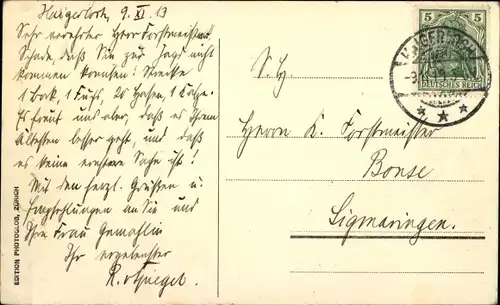 Haigerloch, 9. XI. 13
Sehr verehrter Herr Forstmeister!
Schade, daß Sie zur Jagd nicht
kommen konnten! Strecke
1 Bock, 1 Fuchs, 20 Hasen, 1 Katze.
Es freut uns aber, daß es Ihrem
Ältesten besser geht, und daß
es keine ernstere Sache ist!
Mit den herzl. Grüßen u.
Empfehlungen an Sie und
Ihre Frau Gemahlin
Ihr ergebenster
EDITION PHOTOGLOB, ZÜRICH
5 5
DEUTSCHES REICH
HAIGERLOCH
S. H.
Herrn K. Forstmeister
Bonse
Sigmaringen.